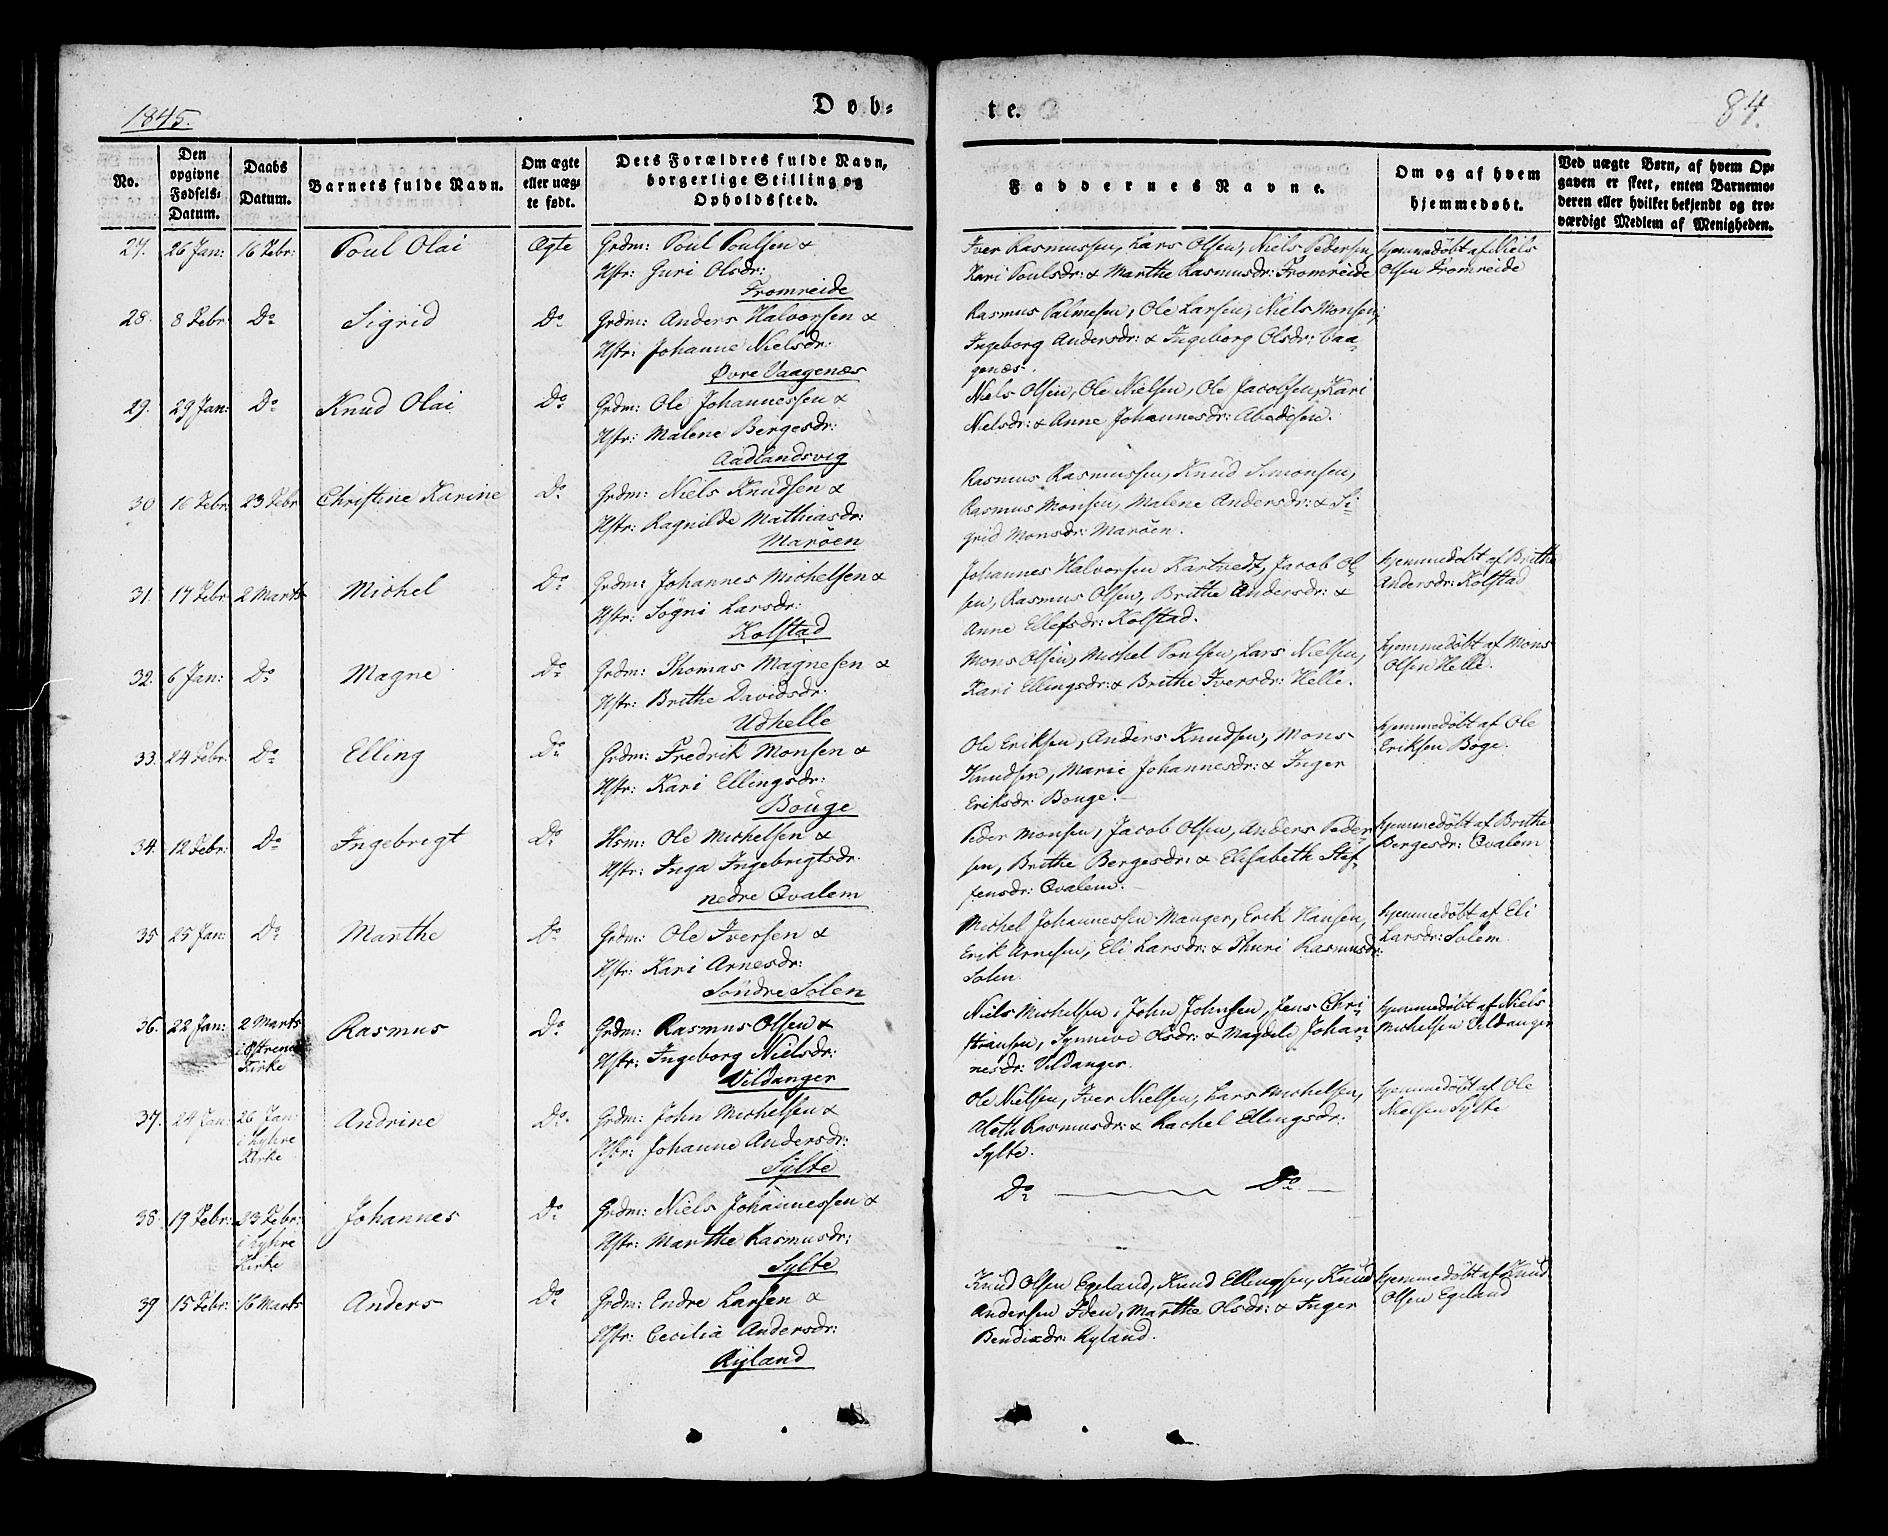 1845.
Døb-
te.
84.
No.
Den opgivne Fødsels-Datum.
Daabs Datum.
Barnets fulde Navn.
Om ægte eller uægte født.
Dets Forældres fulde Navn, borgerlige Stilling og Opholdssted.
Faddernes Navne.
Om og af hvem hjemmedøbt.
Ved uægte Børn, af hvem Op-
gaven er skeet, enten Barnemo-
deren eller hvilket bekjendt og tro-
værdigt Medlem af Menigheden.
27. 26 Jan: 16 Febr: Poul Olai Ægte Grdm: Poul Poulsen &
Hstr: Guri Olsdr:
Fromreide
Iver Rasmussen, Lars Olsen, Niels Pedersen,
Kari Poulsdr: & Marthe Rasmusdr: Fromreide
hjemmedøbt af Niels
Olsen Fromreide
28. 8 Febr: Do Sigrid Do Grdm: Anders Halvorsen &
Hstr: Johanne Nielsdr:
Øvre Vaagenæs
Rasmus Palmesen, Ole Larsen, Niels Monsen,
Ingeborg Andersdr: & Ingeborg Olsdr: Vaa-
genæs.
29. 29 Jan: Do Knud Olai Do Grdm: Ole Johannessen &
Hstr: Malene Bergesdr:
Aadlandsvig
Niels Olsen, Ole Nielsen, Ole Jacobsen, Kari
Nielsdr: & Anne Johannesdr:
30 16 Febr: 23 Febr Christine Karine Do Grdm: Niels Knudsen &
Hstr: Ragnilde Mathiasdr:
Marøen
Rasmus Rasmussen, Knud Simonsen,
Rasmus Monsen, Malene Andersdr: & Si-
grid Monsdr: Marøen.
31. 17 Febr 2 Marts Michel Do Grdm: Johannes Michelsen &
Hstr: Søgni Larsdr:
Kolstad
Johannes Halvorsen Kartvedt, Jacob Ol-
sen, Rasmus Olsen, Brithe Andersdr: &
Anne Ellefsdr: Kolstad.
hjemmedøbt af Brithe
Andersdr: Kolstad
32. 6 Jan: Do Magne Do Grdm: Thomas Magnesen &
Hstr: Brithe Davidsdr:
Udhelle
Mons Olsen, Michel Poulsen, Lars Nielsen,
Kari Ellingsdr: & Brithe Iversdr: Helle.
hjemmedøbt af Mons
Olsen Helle.
33. 24 Febr: Do Elling Do Grdm: Fredrik Monsen &
Hstr: Kari Ellingsdr:
Bouge
Ole Eriksen, Anders Knudsen, Mons
Knudsen, Marie Johannesdr: & Inger
Eriksdr: Bouge.
hjemmedøbt af Ole
Eriksen Boge.
34. 12 Febr: Do Ingebrigt Do Hsm: Ole Michelsen &
Hstr: Inga Ingebrigtsdr:
nedre Qvalem
Peder Monsen, Jacob Olsen, Anders Peder-
sen, Brithe Bergesdr: & Elisabeth Stef-
fensdr: Qvalem.
hjemmedøbt af Brithe
Bergesdr: Qvalem
35 25 Jan: Do Marthe Do Grdm: Ole Iversen &
Hstr: Kari Arnesdr:
Søndre Solen
Michel Johannessen Manger, Erik Hansen,
Erik Arnesen, Eli Larsdr: & Thuri Rasmusdr:
Solen.
hjemmedøbt af Eli
Larsdr: Solem
36. 22 Jan: 2 Marts
i Østrene
Kirke
Rasmus Do Grdm: Rasmus Olsen &
Hstr: Ingeborg Nielsdr:
Vildanger
Niels Michelsen, John Johnsen, Jens Chri-
stiansen, Synneve Olsdr: & Magdeli Johan-
nesdr: Vildanger.
hjemmedøbt af Niels
Michelsen Vildanger
37. 24 Jan: 26 Jan:
i Lyhre
Kirke
Andrine Do Grdm: John Michelsen &
Hstr: Johanne Andersdr:
Sylte
Ole Nielsen, Iver Nielsen, Lars Michelsen,
Aleth Rasmusdr: & Rachel Ellingsdr:
Sylte.
hjemmedøbt af Ole
Nielsen Sylte
38. 19 Febr: 23 Febr:
i Lyhre
Kirke
Johannes Do Grdm: Niels Johannessen &
Hstr: Marthe Rasmusdr:
Sylte
Do Do
39 15 Febr: 16 Marts Anders Do Grdm: Endre Larsen &
Hstr: Cecilia Andersdr:
Ryland
Knud Olsen Egeland, Knud Ellingsen, Knud
Andersen Iden, Marthe Olsdr: & Inger
Bendixdr: Ryland.
hjemmedøbt af Knud
Olsen Egeland